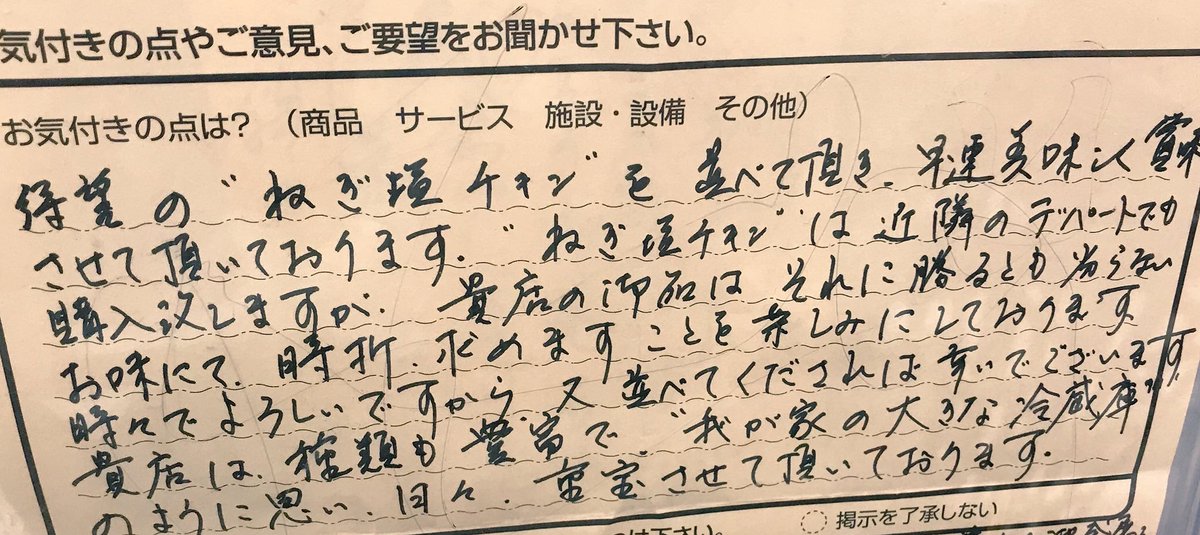 気付きの点やご意見、ご要望をお聞かせ下さい。
お気付きの点は？（商品　サービス　施設・設備　その他）
待望の“ねぎ塩チキン”を並べて頂き、早速美味しく賞味
させて頂いております。“ねぎ塩チキン”は近隣のデパートでも
購入致しますが、貴店の御品はそれに勝るとも劣らない
お味にて、時折、求めますことを楽しみにしております。
時々でよろしいですから、又並べてくだされば幸いでございます。
貴店は、種類も豊富で、“我が家の大きな冷蔵庫”
のように思い、日々、重宝させて頂いております。
掲示を了承しない
下さい。